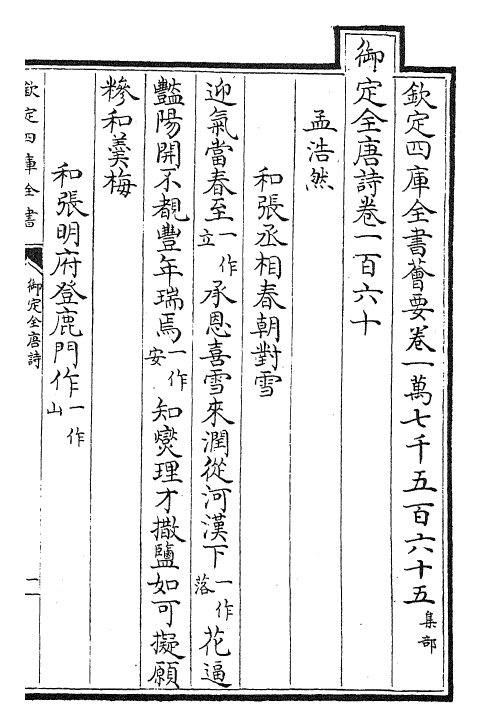 欽定四庫全書薈要卷一萬七千五百六十五 集部
御定全唐詩卷一百六十
孟浩然
和張丞相春朝對雪
迎氣當春至一作立承恩喜雪來潤從河漢下一作落花逼
豔陽開不覩豐年瑞焉一作安知燮理才撒鹽如可擬願
糝和羹梅
和張明府登鹿門作一作山
欽定四庫全書
御定全唐詩
一